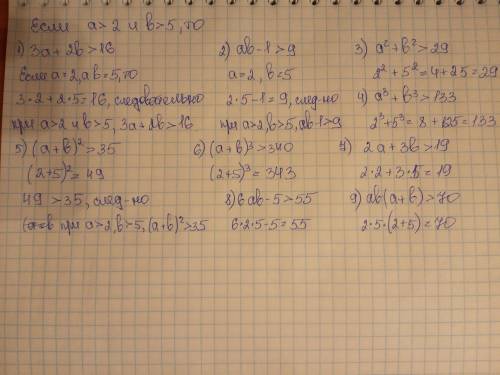 Если a>2 и b>5, то
1) 3a+2b>16
Если a=2, a b=5, то
3·2+2·5=16, следовательно
при a>2 и b>5, 3a+2b>16
2) ab-1>9
a=2, b=5
2·5-1=9, след-но
при a>2, b>5, ab-1>9
3) a²+b²>29
2²+5²=4+25=29
4) a³+b³>133
2³+5³=8+125=133
5) (a+b)²>35
(2+5)²=49
49>35, след-но
при a>2, b>5, (a+b)²>35
6) (a+b)³>340
(2+5)³=343
7) 2a+3b>19
2·2+3·5=19
8) 6ab-5>55
6·2·5-5=55
9) ab(a+b)>70
2·5·(2+5)=70